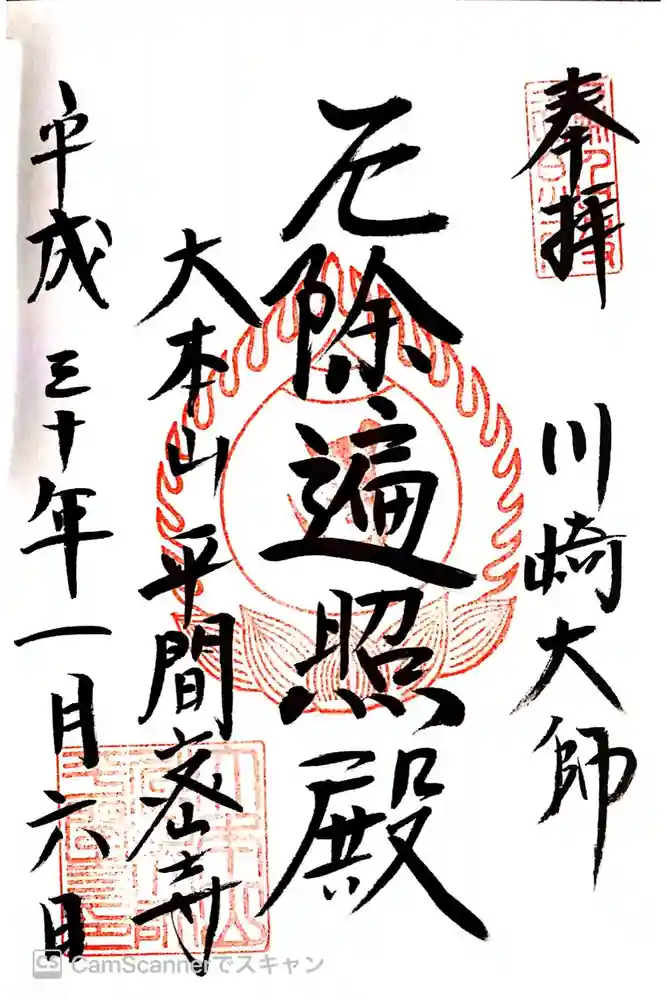 奉拝
川崎大師
厄除遍照殿
大本山 平間密寺
平成三十年一月六日
CS CamScannerでスキャン